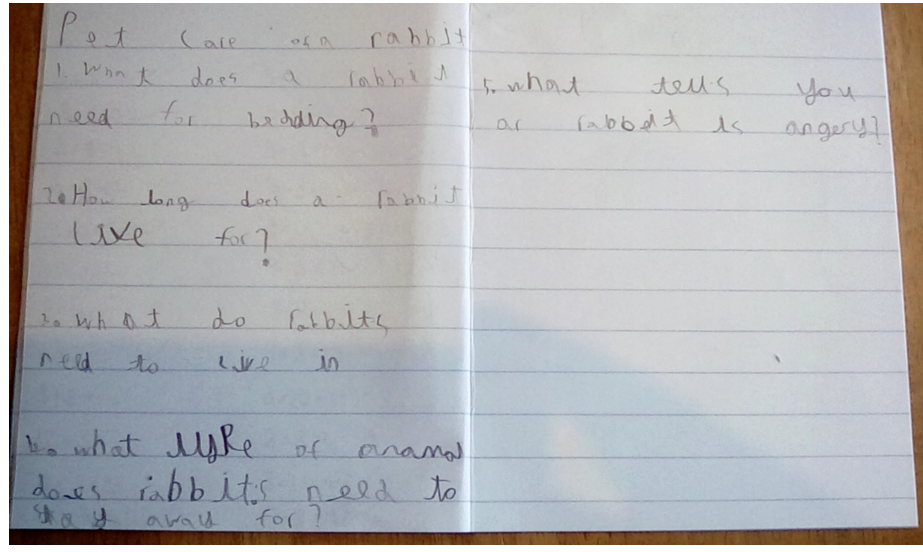 Pet Care of a rabbit
1. What does a rabbit
need for bedding?
2. How long does a rabbit
live for?
3. What do rabbits
need to live in
4. what type of anamal
does rabbits need to
stay away for?
5. what tells you
ar rabbit is angery?